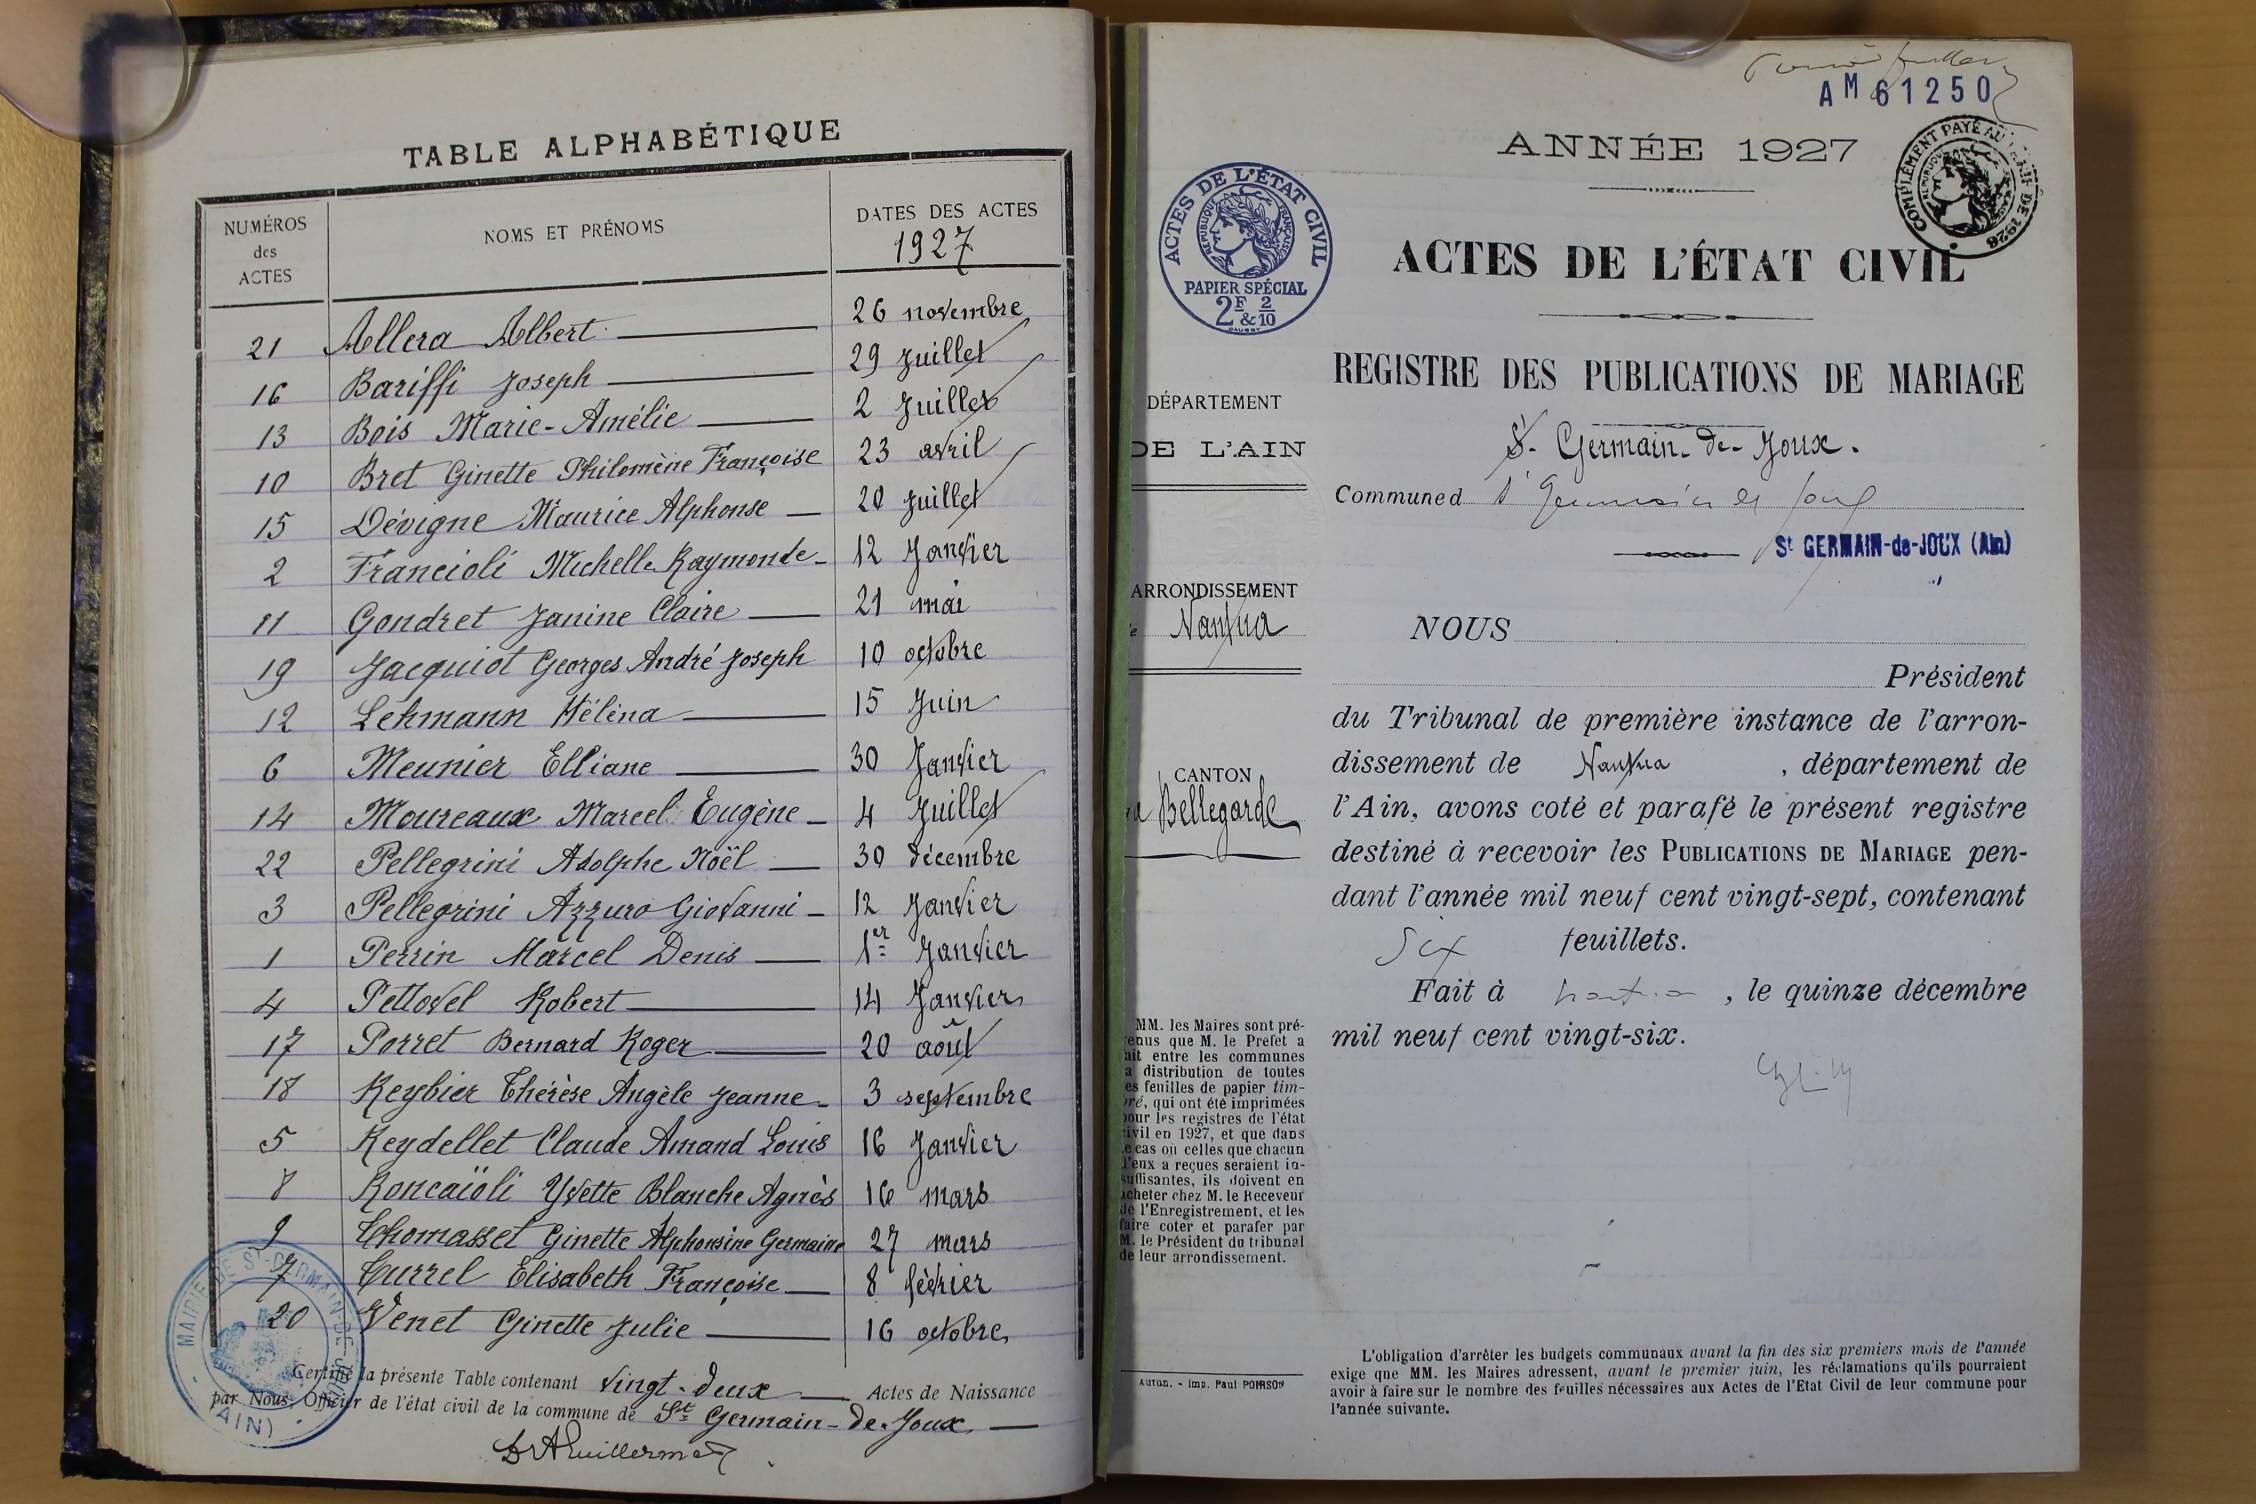 TABLE ALPHABÉTIQUE
NUMÉROS des ACTES
NOMS ET PRÉNOMS
DATES DES ACTES
1927
21 Allera Albert 26 novembre
16 Bariffi Joseph 29 Juillet
13 Bois Marie-Amélie 2 Juillet
10 Bret Ginette Philomène Françoise 23 avril
15 Dévigne Maurice Alphonse 20 Juillet
2 Francioli Michelle Raymonde 12 Janvier
11 Gondret Janine Claire 21 mai
19 Jacquiot Georges André Joseph 10 octobre
12 Léhmann Héléna 15 Juin
6 Meunier Elliane 30 Janvier
14 Moureaux Marcel Eugène 4 Juillet
22 Pellegrini Adolphe Noël 30 décembre
3 Pellegrini Azzuro Giovanni 12 Janvier
1 Perrin Marcel Denis 1er Janvier
4 Pettovel Robert 14 Janvier
17 Porret Bernard Roger 20 août
18 Reybier Thérèse Angèle Jeanne 3 septembre
5 Reydellet Claude Amand Louis 16 Janvier
8 Roncaïoli Yvette Blanche Agnès 16 mars
9 Thomasset Ginette Alphonsine Germaine 27 mars
7 Turrel Elisabeth Françoise 8 février
20 Venet Ginette Julie 16 octobre
Certifié la présente Table contenant vingt-deux Actes de Naissance
par Nous, Officier de l'état civil de la commune de St Germain-de-Joux
MAIRIE DE ST-GERMAIN-DE-JOUX
(AIN)
AM 61250
ANNÉE 1927
COMPLÉMENT PAYÉ AU TARIF DE 1926
ACTES DE L'ÉTAT CIVIL
RÉPUBLIQUE FRANÇAISE
PAPIER SPÉCIAL
2F & 2/10
ACTES DE L'ÉTAT CIVIL
REGISTRE DES PUBLICATIONS DE MARIAGE
DÉPARTEMENT
DE L'AIN
St-Germain-de-Joux.
Commune d St Germain de Joux
St GERMAIN-de-JOUX (Ain)
ARRONDISSEMENT
Nantua
CANTON
Bellegarde
NOUS
Président
du Tribunal de première instance de l'arron-
dissement de Nantua, département de
l'Ain, avons coté et parafé le présent registre
destiné à recevoir les PUBLICATIONS DE MARIAGE pen-
dant l'année mil neuf cent vingt-sept, contenant
Six feuillets.
Fait à Nantua, le quinze décembre
mil neuf cent vingt-six.
MM. les Maires sont pré-
enus que M. le Prefet a
ait entre les communes
a distribution de toutes
es feuilles de papier tim-
bré, qui ont été imprimées
pour les registres de l'état
civil en 1927, et que dans
le cas où celles que chacun
d'eux a reçues seraient in-
suffisantes, ils doivent en
acheter chez M. le Receveur
de l'Enregistrement, et les
faire coter et parafer par
M. le Président du tribunal
de leur arrondissement.
Autun. - Imp. Paul POIRSON
L'obligation d'arrêter les budgets communaux avant la fin des six premiers mois de l'année
exige que MM. les Maires adressent, avant le premier juin, les réclamations qu'ils pourraient
avoir à faire sur le nombre des feuilles nécessaires aux Actes de l'Etat Civil de leur commune pour
l'année suivante.